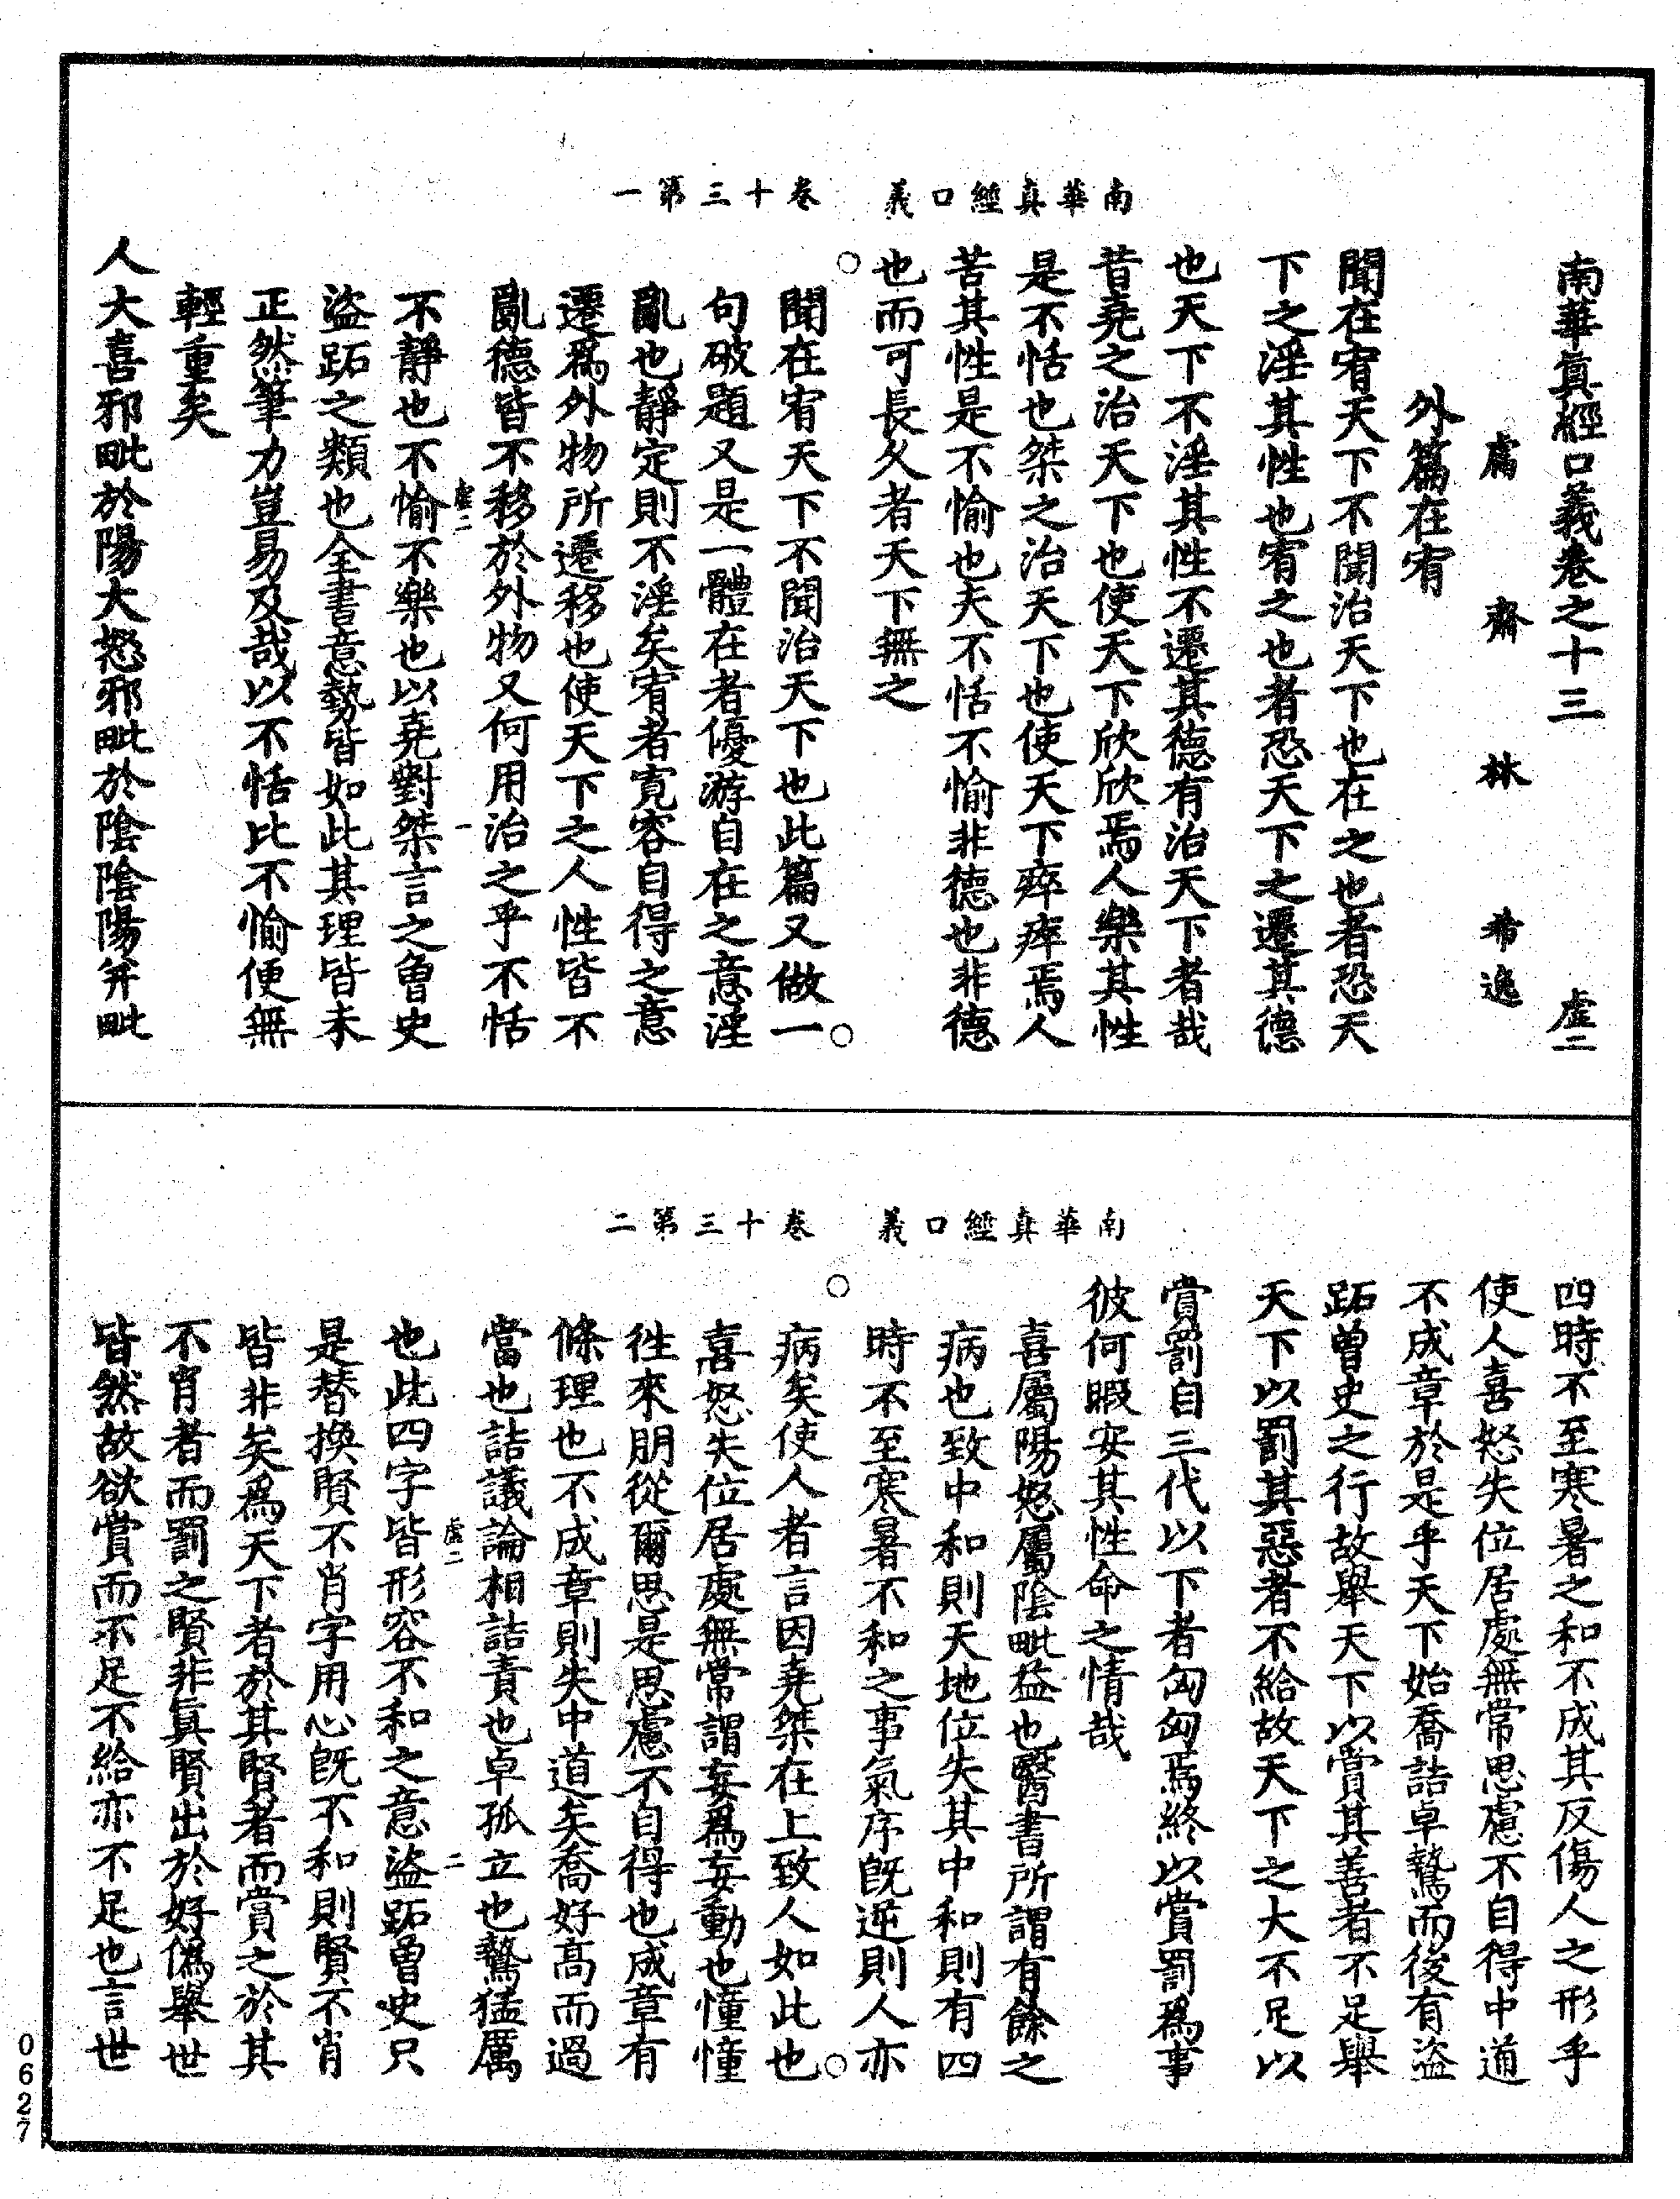 南華真經口義　卷十三第一
南華眞經口義卷之十三　虛二
鬳齋林希逸
外篇在宥
聞在宥天下不聞治天下也在之也者恐天
下之淫其性也宥之也者恐天下之遷其德
也天下不淫其性不遷其德有治天下者哉
昔堯之治天下也使天下欣欣焉人樂其性
是不恬也桀之治天下也使天下瘁瘁焉人
苦其性是不愉也夫不恬不愉非德也非德
也而可長久者天下無之
聞在宥天下不聞治天下也此篇又做一
句破題又是一體在者優游自在之意淫
亂也靜定則不淫矣宥者寛容自得之意
遷爲外物所遷移也使天下之人性皆不
亂德皆不移於外物又何用治之乎不恬
虛二　一
不靜也不愉不樂也以堯對桀言之曾史
盜跖之類也全書意勢皆如此其理皆未
正然筆力豈易及哉以不恬比不愉便無
輕重矣
人大喜邪毗於陽大怒邪毗於陰陰陽并毗
南華真經口義　卷十三第二
四時不至寒暑之和不成其反傷人之形乎
使人喜怒失位居處無常思慮不自得中道
不成章於是乎天下始喬詰卓鷙而後有盜
跖曾史之行故舉天下以賞其善者不足舉
天下以罰其惡者不給故天下之大不足以
賞罰自三代以下者匈匈焉終以賞罰爲事
彼何暇安其性命之情哉
喜屬陽怒屬陰毗益也醫書所謂有餘之
病也致中和則天地位失其中和則有四
時不至寒暑不和之事氣序旣逆則人亦
病矣使人者言因堯桀在上致人如此也
喜怒失位居處無常謂妄爲妄動也憧憧
徃來朋從爾思是思慮不自得也成章有
條理也不成章則失中道矣喬好高而過
當也詰議論相詰責也卓孤立也鷙猛厲
虛二　二
也此四字皆形容不和之意盜跖曾史只
是替換賢不肖字用心旣不和則賢不肖
皆非矣爲天下者於其賢者而賞之於其
不肖者而罰之賢非眞賢出於好僞舉世
皆然故欲賞而不足不給亦不足也言世
0627